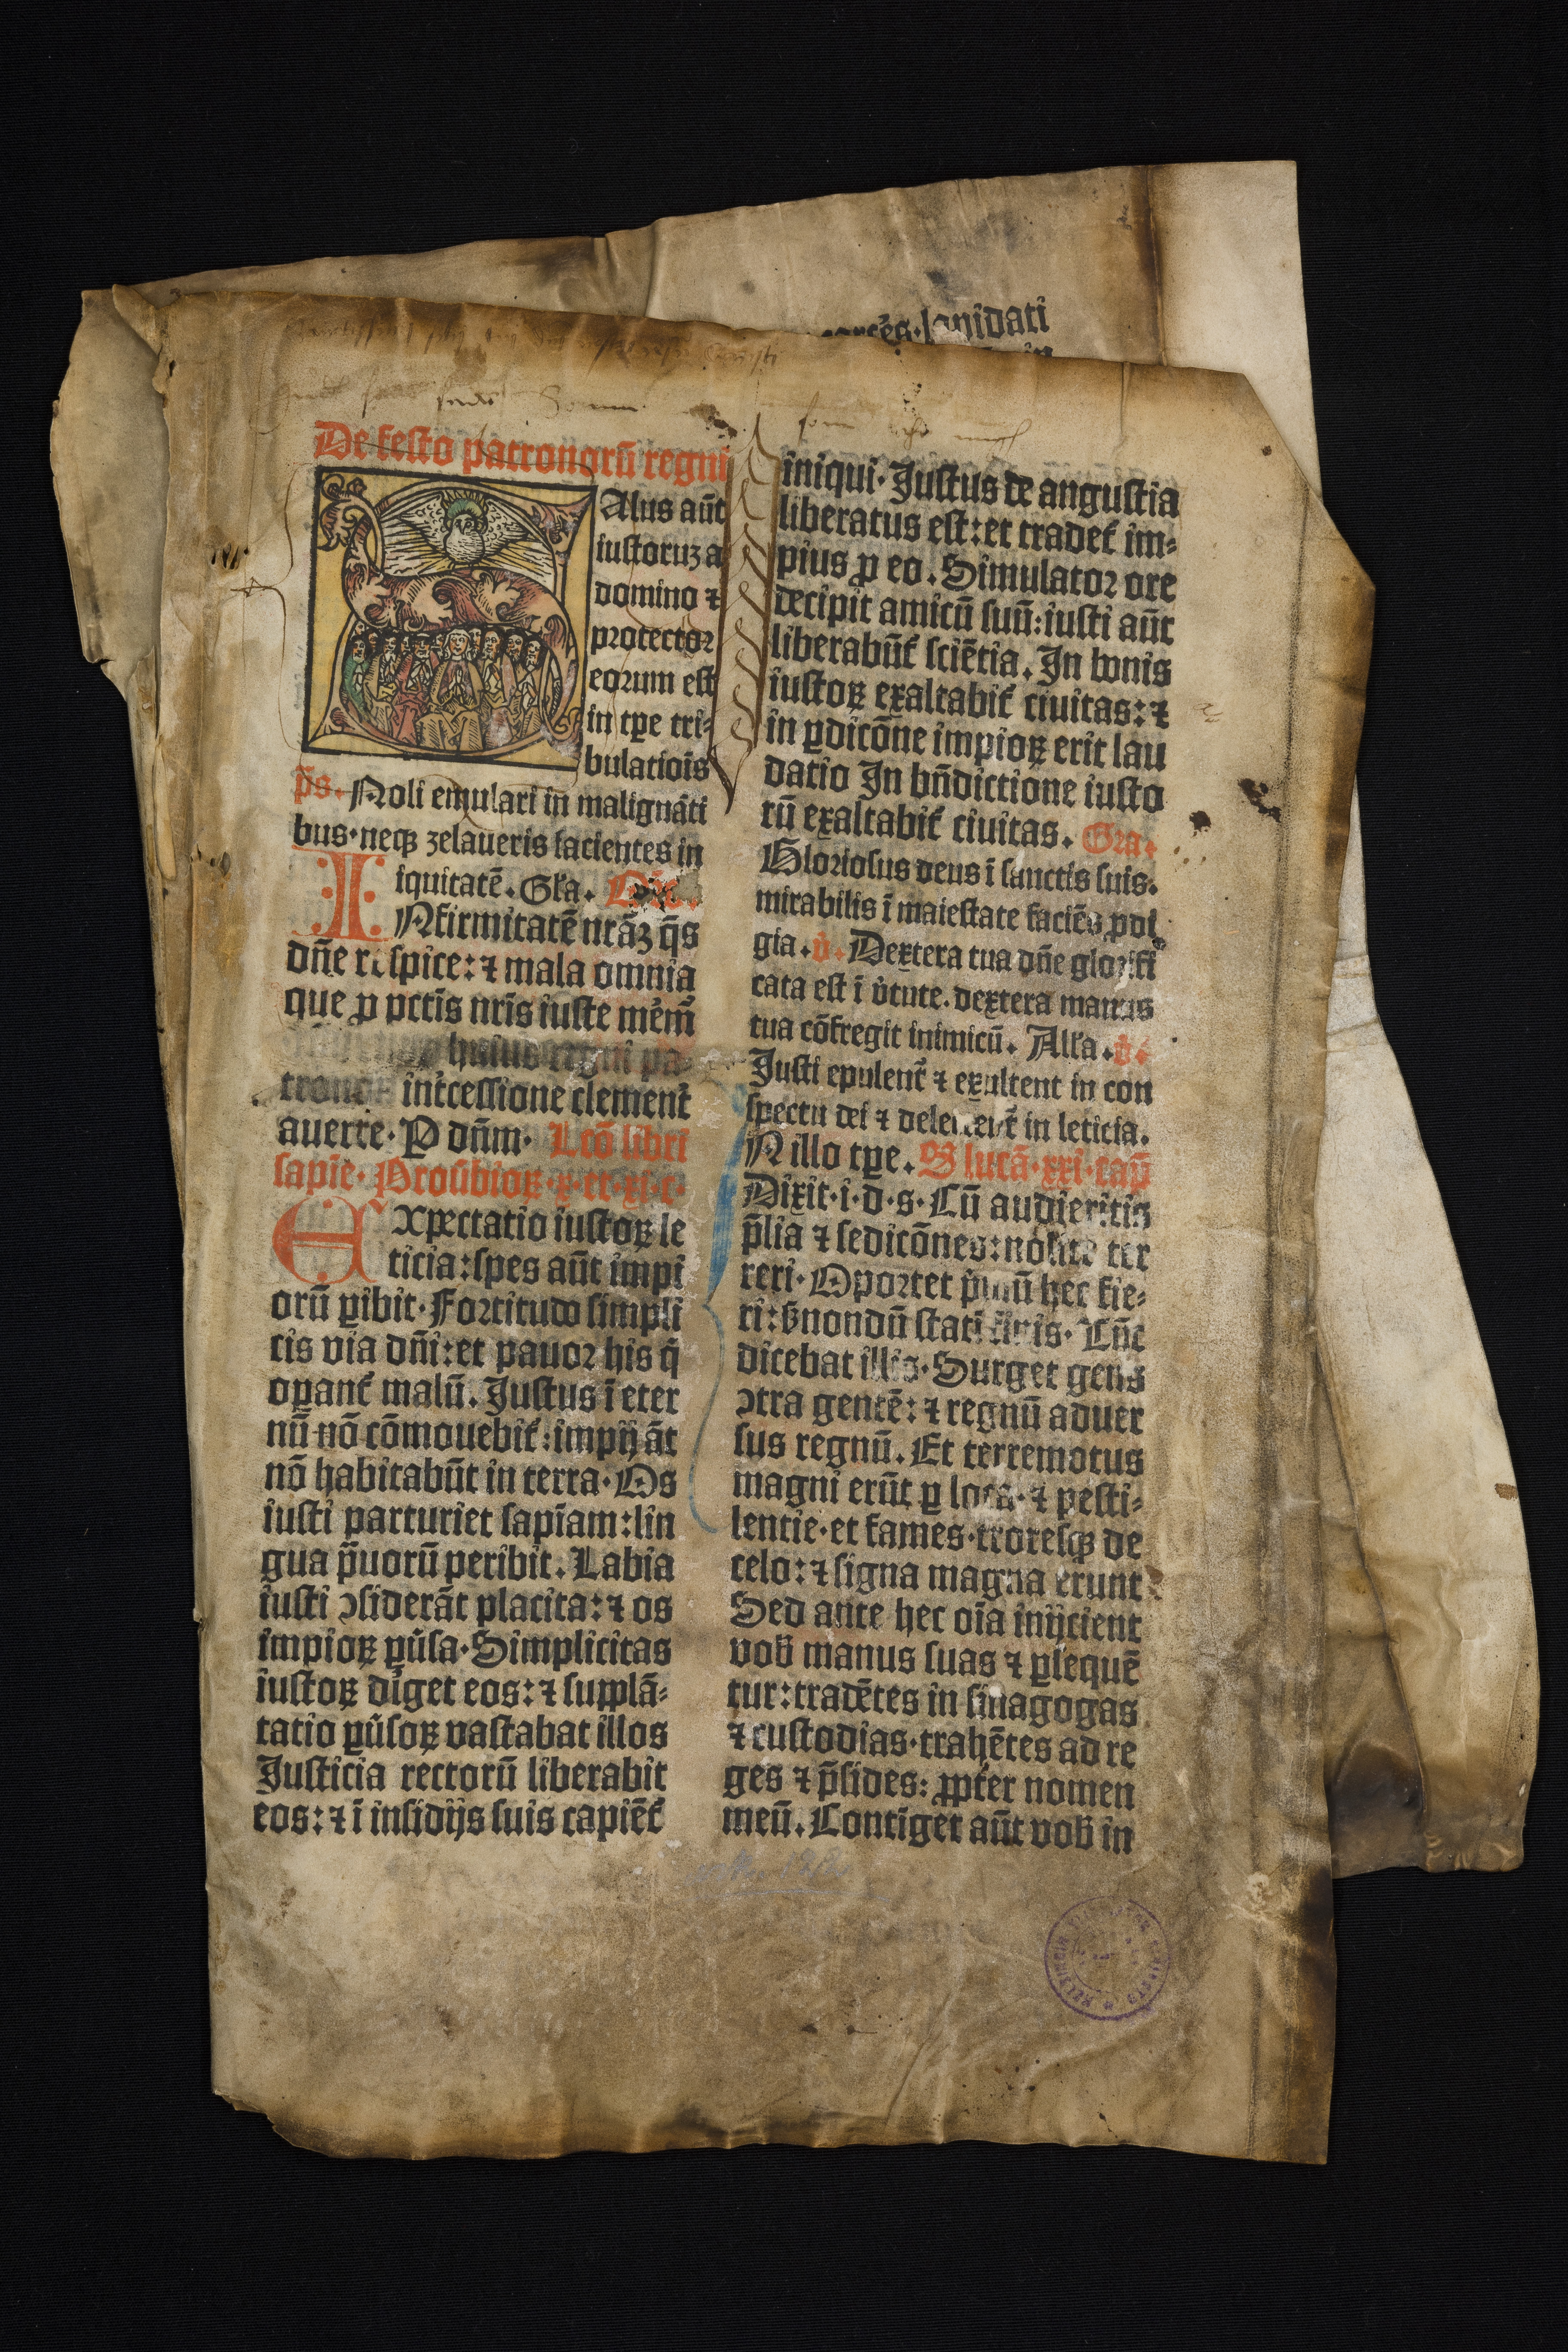 lapidati
De festo patronorū regni
Alus aūt
iustoruꝫ a
domino ⁊
protector
eorum est
in tꝑe tri⸗
bulatiois
p̄s. Noli emulari in malignāti
bus·neqꝫ zelaueris facientes in
iquitatē. Gl̄a.
INfirmitatē nr̄aꝫ q̄s
dn̄e respice: ⁊ mala omnia
que ꝓ pctīs nr̄is iuste mēm̄
huius regni pa⸗
tronoꝝ int̄cessione clement̄
auerte. P dn̄m. Lcō libri
sapiē. Prou̓bioꝝ·x·et·xi·c·
EXpectatio iustoꝝ le
ticia: spes aūt impi
orū ꝑibit. Fortitudo simpli
cis via dn̄i: et pauor his q̄
oꝑant̄ malū. Justus ī eter
nū nō cōmouebit̄: impij āt
nō habitabūt in terra. Os
iusti parturiet sapīam: lin
gua p̄uorū peribit. Labia
iusti ↄsiderāt placita: ⁊ os
impioꝝ ꝑu̓sa. Simplicitas
iustoꝝ diͥget eos: ⁊ supplā⸗
tatio ꝑu̓soꝝ vastabat illos
Justicia rectorū liberabit
eos: ⁊ ī insidijs suis capiēt̄
iniqui. Justus de angustia
liberatus est: et tradet̄ im⸗
pius ꝓ eo. Simulator ore
decipit amicū suū: iusti aūt
liberabūt̄ sciētia. In bonis
iustoꝝ exaltabit̄ ciuitas: ⁊
in ꝑdicōne impioꝝ erit lau
datio In bn̄dictione iusto
rū exaltabit̄ ciuitas. Gra.
Gloriosus deus ī sanctis suis.
mirabilis ī maiestate faciēs ꝓdi
gia. v̓. Dextera tua dn̄e glorifi
cata est ī v̓tute. dextera manus
tua cōfregit inimicū. All̄a. v̓.
Justi epulent̄ ⁊ exultent in con
spectu dei ⁊ delectent̄ in leticia.
N illo tꝑe. Sꝫ lucā·xxi·cap̄
Dixit·i·d·s· Cū audieritis
p̄lia ⁊ sedicōnes: nolite ter
reri. Oportet pͥmū hec fie⸗
ri: sꝫ nondū stati finis. Tūc
dicebat illis. Surget gens
ↄtra gentē: ⁊ regnū aduer
sus regnū. Et terremotus
magni erūt ꝑ loca· ⁊ pesti⸗
lentie· et fames· t̓roresqꝫ de
celo: ⁊ signa magna erunt
Sed ante hec oīa inijcient
vob̄ manus suas ⁊ ꝑsequē
tur: tradētes in sinagogas
⁊ custodias· trahētes ad re
ges ⁊ p̄sides: ꝓpt̄er nomen
meū. Contīget aūt vob̄ in